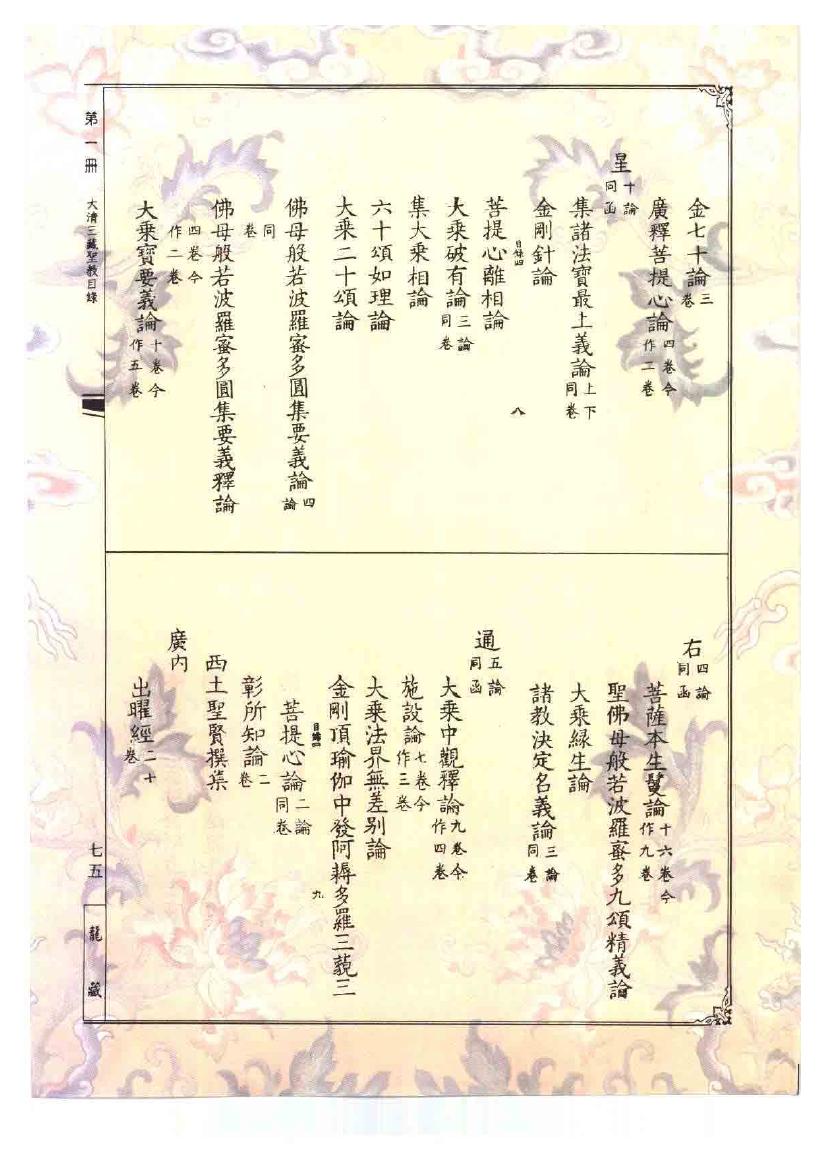 金七十論三卷
廣釋菩提心論四卷今作二卷
星十論同函
集諸法寶最上義論上下同卷
金剛針論
目錄四
八
菩提心離相論
大乘破有論三論同卷
集大乘相論
六十頌如理論
大乘二十頌論
佛母般若波羅蜜多圓集要義論四論
同卷
佛母般若波羅蜜多圓集要義釋論
四卷今作二卷
大乘寶要義論十卷今作五卷
右四論同函
菩薩本生鬘論十六卷今作九卷
聖佛母般若波羅蜜多九頌精義論
大乘緣生論
諸教決定名義論三論同卷
通五論同函
大乘中觀釋論九卷今作四卷
施設論七卷今作三卷
大乘法界無差別論
金剛頂瑜伽中發阿耨多羅三藐三
目錄四
九
菩提心論二論同卷
彰所知論二卷
西土聖賢撰集
廣內
出曜經二十卷
第一冊
大清三藏聖教目錄
七五
龍藏